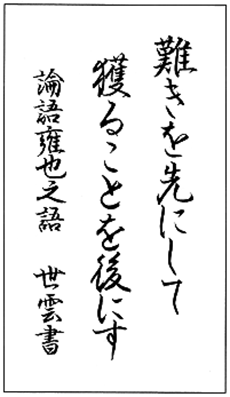 難きを先にして
獲ることを後にす
論語雍也之語 世雲書